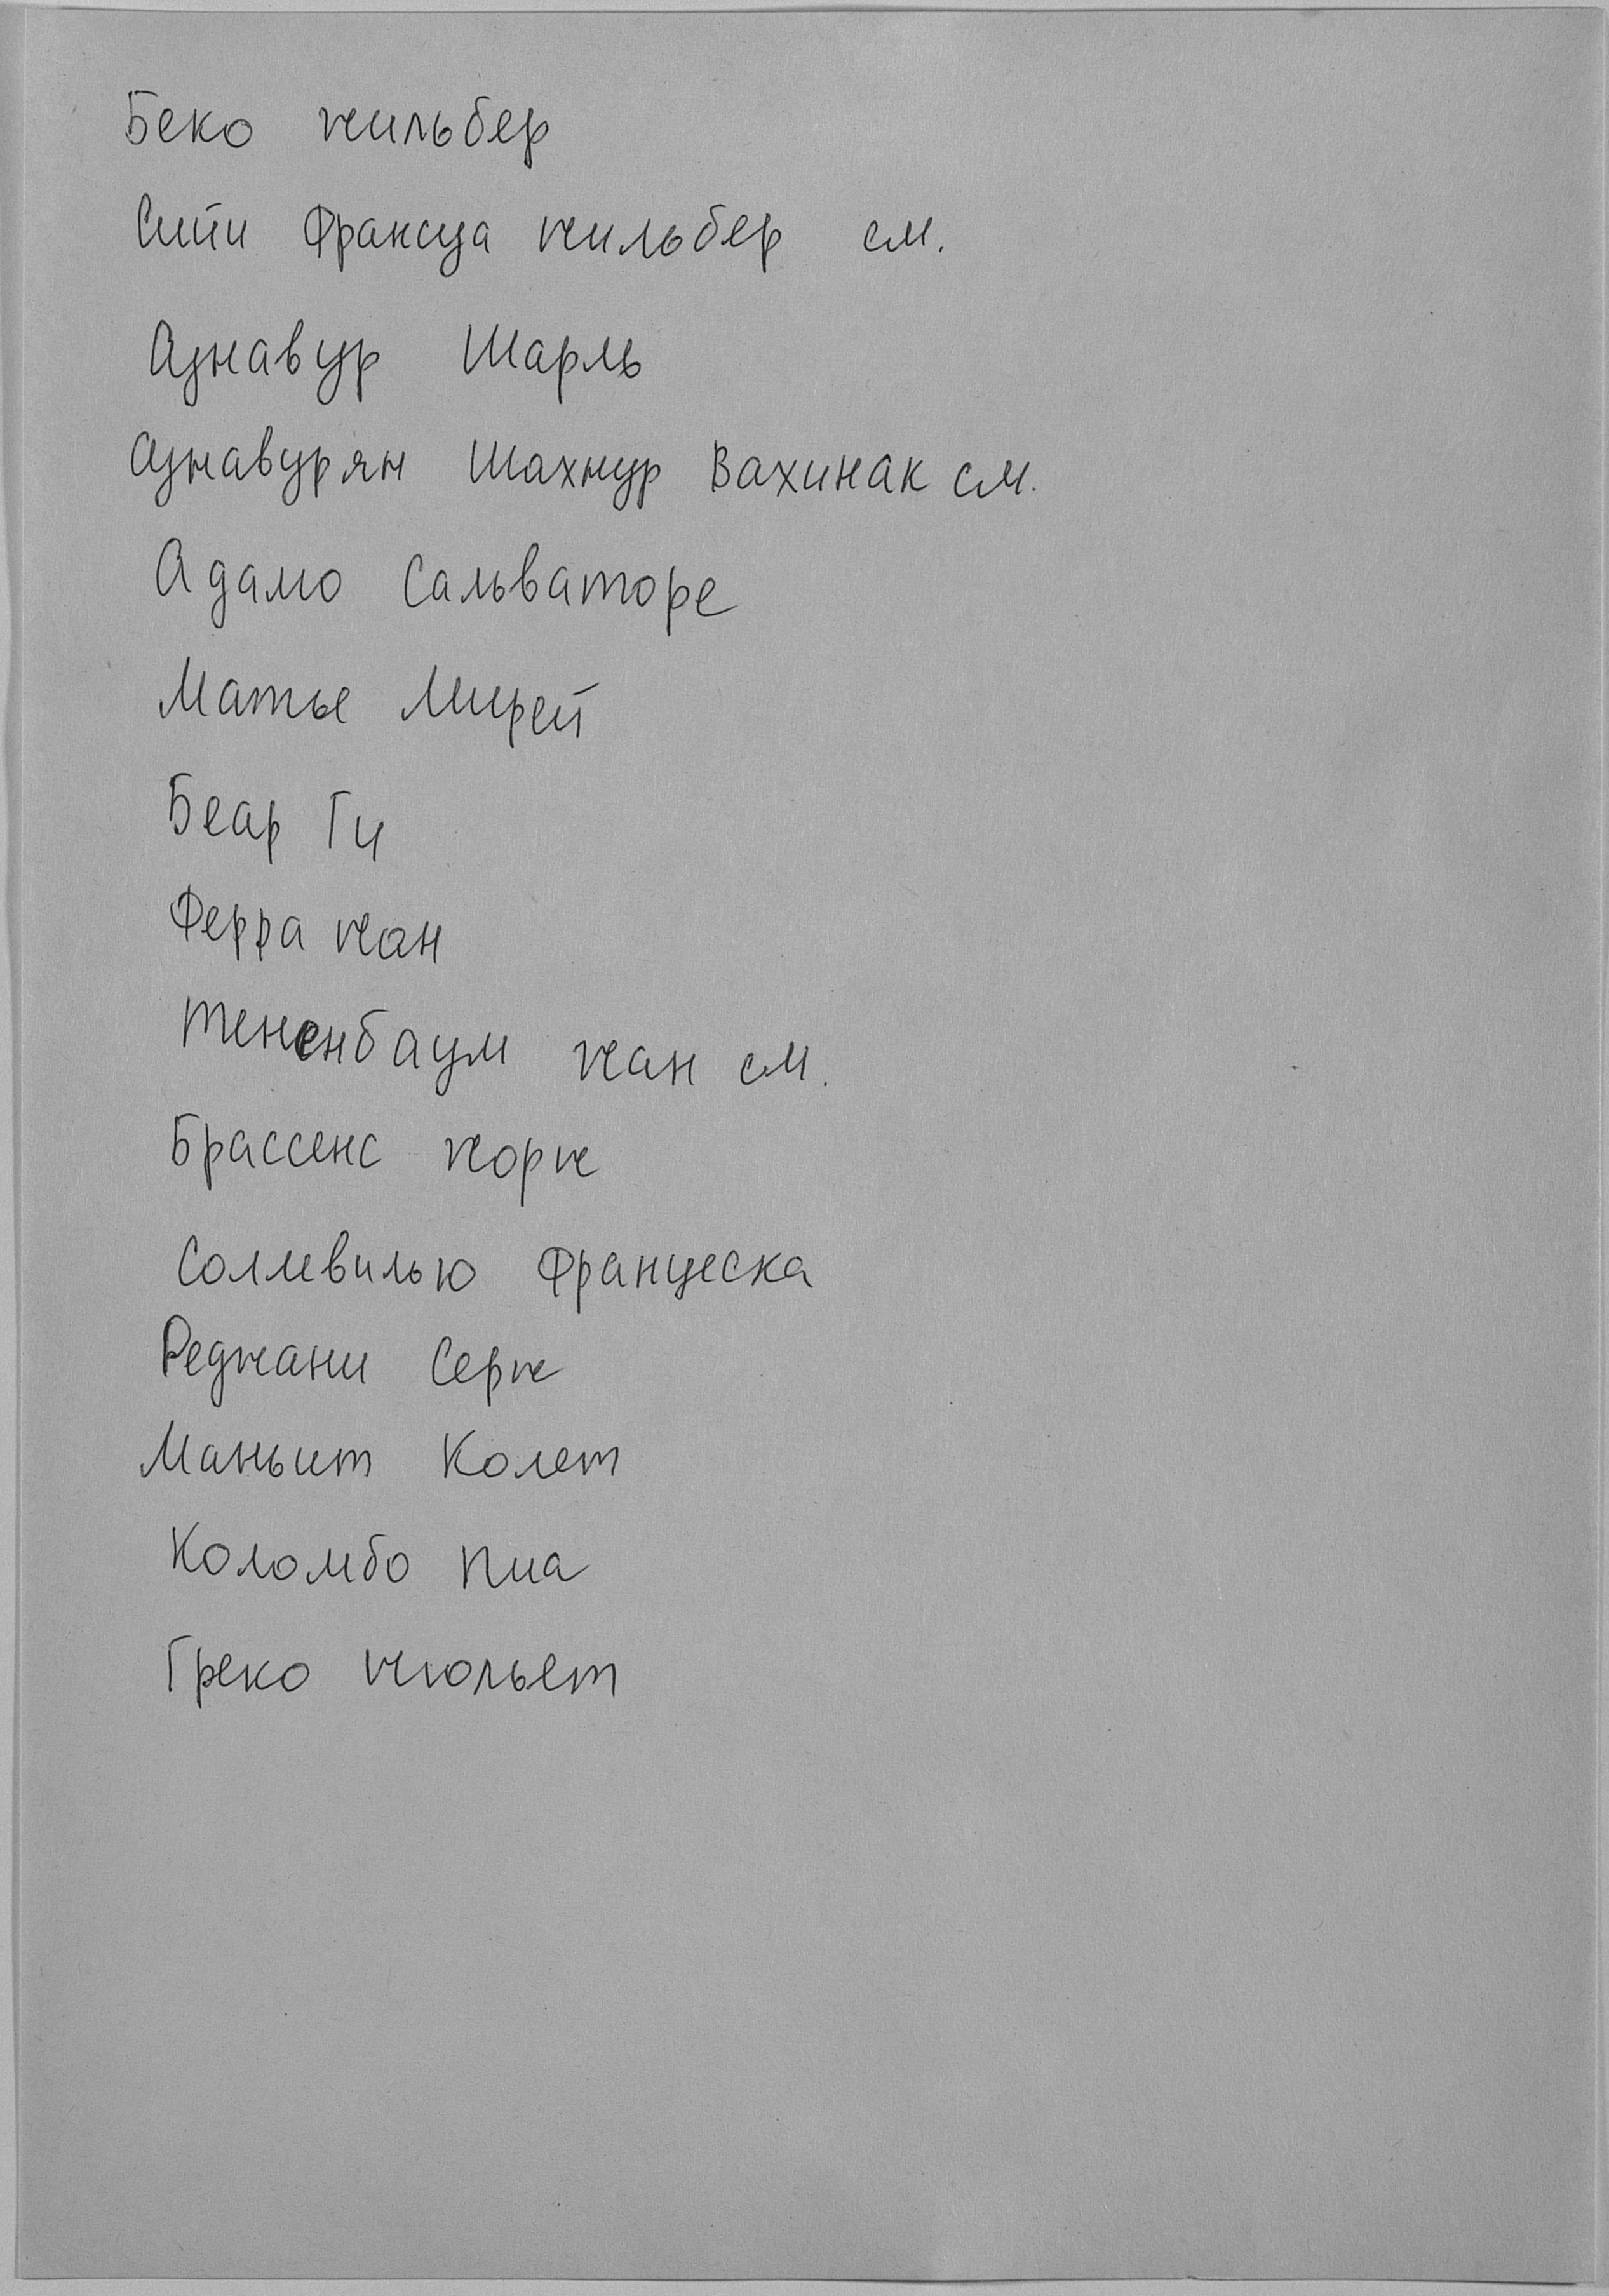 Беко Жильбер
Сийи Франсуа Жильбер см.
Азнавур Шарль
Азнавурян Шахнур Вахинак см.
Адамо Сальваторе
Матье Мирей
Беар Ги
Ферра Жан
Тененбаум Жан см.
Брассенс Жорж
Соллевилью Франческа
Реджани Серж
Маньит Колет
Коломбо Пиа
Греко Жюльет